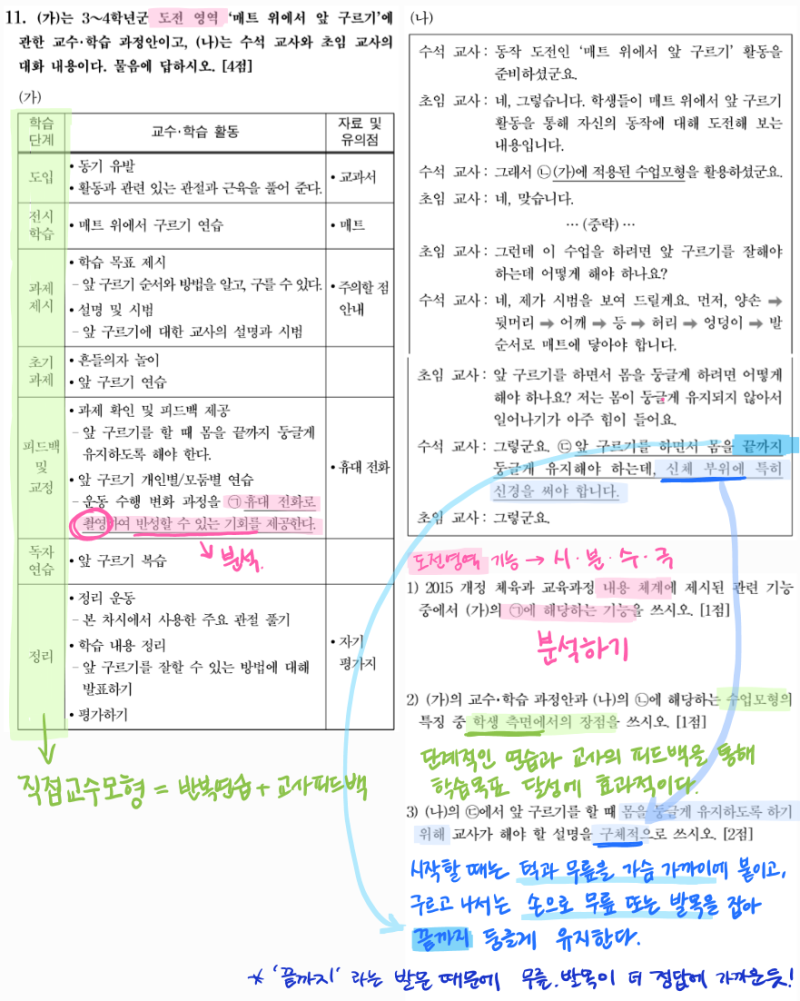 11. (가)는 3~4학년군 도전 영역 '매트 위에서 앞 구르기'에
관한 교수·학습 과정안이고, (나)는 수석 교사와 초임 교사의
대화 내용이다. 물음에 답하시오. [4점]
(가)
학습
단계
교수·학습 활동
자료 및
유의점
도입
• 동기 유발
• 활동과 관련 있는 관절과 근육을 풀어 준다.
• 교과서
전시
학습
• 매트 위에서 구르기 연습
• 매트
과제
제시
• 학습 목표 제시
- 앞 구르기 순서와 방법을 알고, 구를 수 있다.
• 설명 및 시범
- 앞 구르기에 대한 교사의 설명과 시범
• 주의할 점
안내
초기
과제
• 흔들의자 놀이
• 앞 구르기 연습
피드백
및
교정
• 과제 확인 및 피드백 제공
- 앞 구르기를 할 때 몸을 끝까지 둥글게
유지하도록 해야 한다.
• 앞 구르기 개인별/모둠별 연습
- 운동 수행 변화 과정을 ㉠휴대 전화로
촬영하여 반성할 수 있는 기회를 제공한다.
• 휴대 전화
분석.
독자
연습
• 앞 구르기 복습
정리
• 정리 운동
- 본 차시에서 사용한 주요 관절 풀기
• 학습 내용 정리
- 앞 구르기를 잘할 수 있는 방법에 대해
발표하기
• 평가하기
• 자기
평가지
직접교수모형 = 반복연습 + 교사피드백
(나)
수석 교사 : 동작 도전인 '매트 위에서 앞 구르기' 활동을
준비하셨군요.
초임 교사 : 네, 그렇습니다. 학생들이 매트 위에서 앞 구르기
활동을 통해 자신의 동작에 대해 도전해 보는
내용입니다.
수석 교사 : 그래서 ㉡(가)에 적용된 수업모형을 활용하셨군요.
초임 교사 : 네, 맞습니다.
… (중략) …
초임 교사 : 그런데 이 수업을 하려면 앞 구르기를 잘해야
하는데 어떻게 해야 하나요?
수석 교사 : 네, 제가 시범을 보여 드릴게요. 먼저, 양손 ➡
뒷머리 ➡ 어깨 ➡ 등 ➡ 허리 ➡ 엉덩이 ➡ 발
순서로 매트에 닿아야 합니다.
초임 교사 : 앞 구르기를 하면서 몸을 둥글게 하려면 어떻게
해야 하나요? 저는 몸이 둥글게 유지되지 않아서
일어나기가 아주 힘이 들어요.
수석 교사 : 그렇군요. ㉢앞 구르기를 하면서 몸을 끝까지
둥글게 유지해야 하는데, 신체 부위에 특히
신경을 써야 합니다.
초임 교사 : 그렇군요.
도전영역 기능 → 시·분·수·극
1) 2015 개정 체육과 교육과정 내용 체계에 제시된 관련 기능
중에서 (가)의 ㉠에 해당하는 기능을 쓰시오. [1점]
분석하기
2) (가)의 교수·학습 과정안과 (나)의 ㉡에 해당하는 수업모형의
특징 중 학생 측면에서의 장점을 쓰시오. [1점]
단계적인 연습과 교사의 피드백을 통해
학습목표 달성에 효과적이다.
3) (나)의 ㉢에서 앞 구르기를 할 때 몸을 둥글게 유지하도록 하기
위해 교사가 해야 할 설명을 구체적으로 쓰시오. [2점]
시작할 때는 턱과 무릎을 가슴 가까이에 붙이고,
구르고 나서는 손으로 무릎 또는 발목을 잡아
끝까지 둥글게 유지한다.
* '끝까지' 라는 발문 때문에 무릎, 발목이 더 정답에 가까운듯!